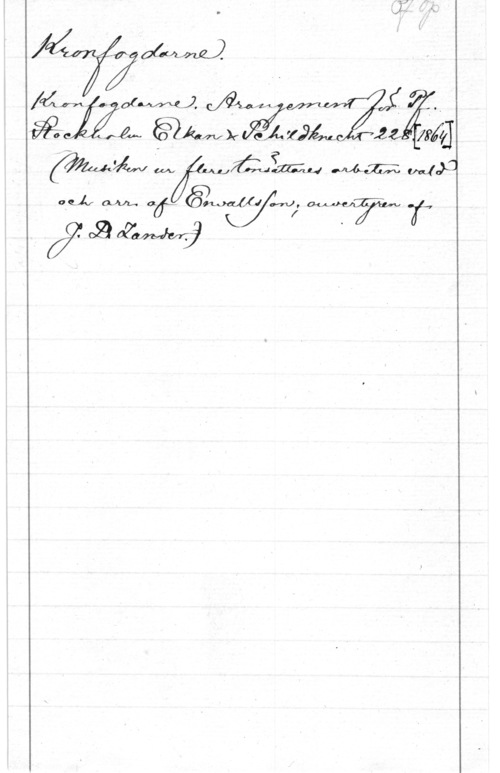 Pf op
Kronfogdarne.
Kronfogdarne. Arrangement för Pf.
Stockholm Elkan & Schildknecht 228 [1864]
(Musiken ur flere tonsättares arbeten vald
och arr. af Enwallsson, ouverturen af
J. D. Zander.)